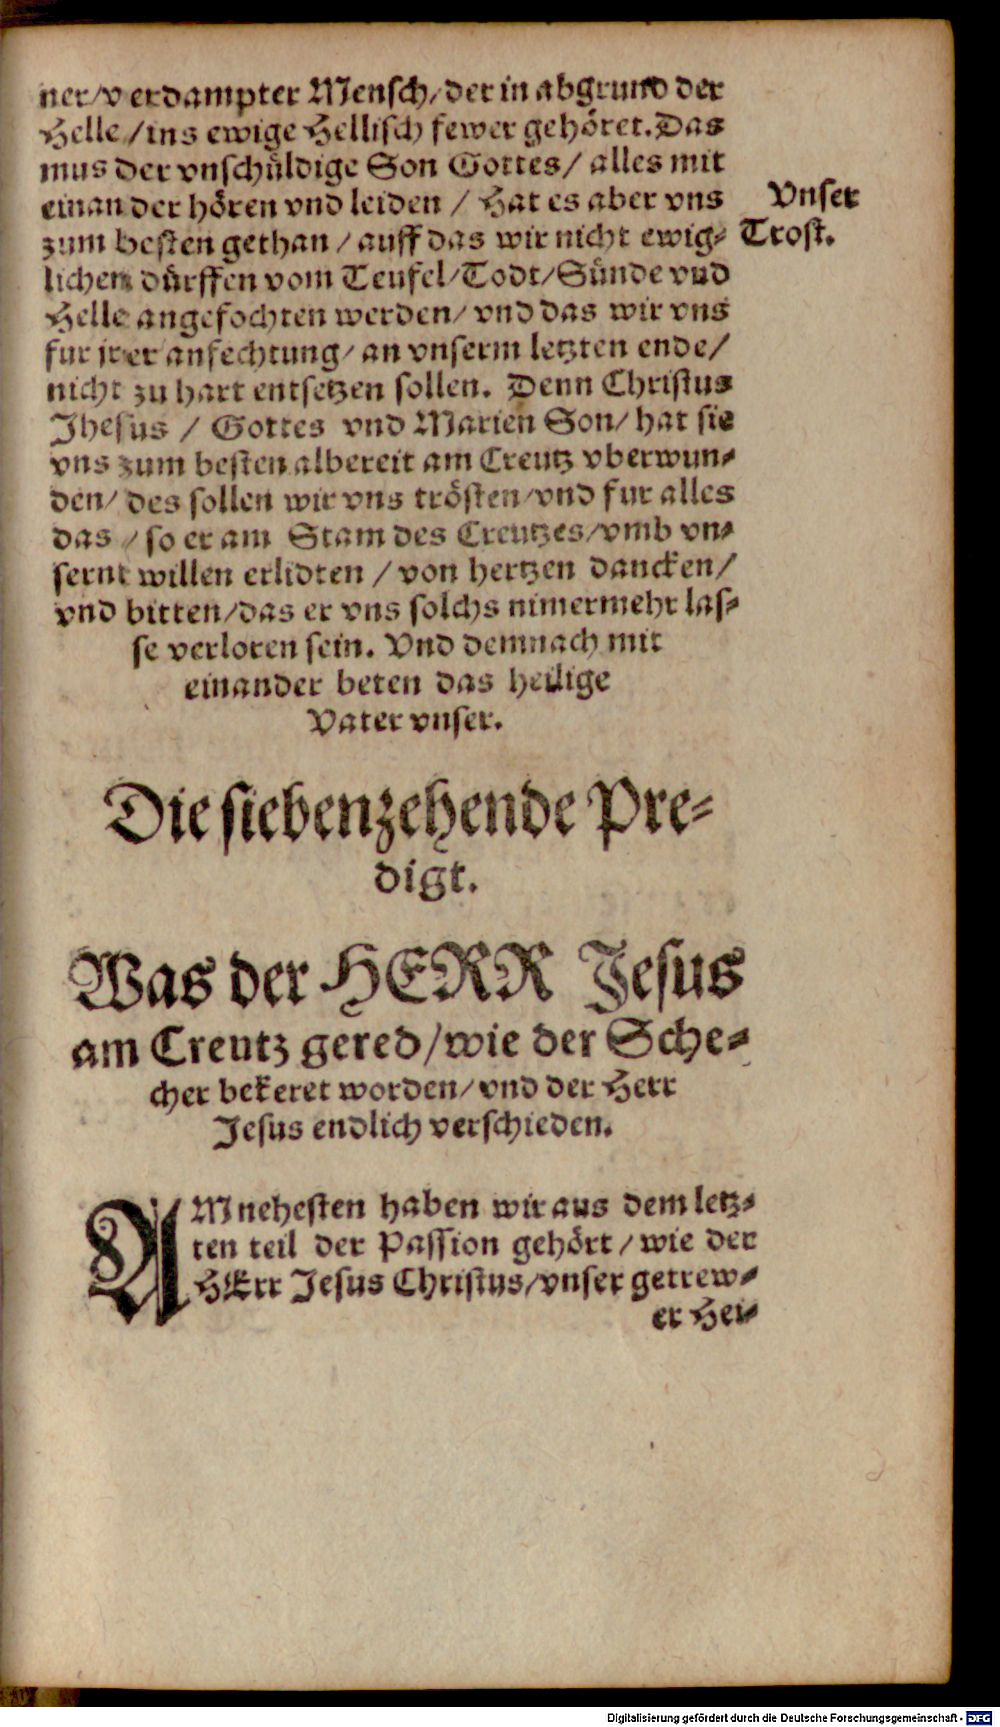 ner/verdampter Mensch/der in abgrund der
Helle/ins ewige Hellisch fewer gehöret. Das
mus der vnschüldige Son Gottes/ alles mit
einander hören vnd leiden / Hat es aber vns
zum besten gethan / auff das wir nicht ewig-
lichen dürffen vom Teufel/Todt/Sünde vnd
Helle angefochten werden/ vnd das wir vns
fur irer anfechtung/ an vnserm letzten ende/
nicht zu hart entsetzen sollen. Denn Christus
Jhesus / Gottes vnd Marien Son/ hat sie
vns zum besten albereit am Creutz vberwun-
den/ des sollen wir vns trösten/vnd fur alles
das / so er am Stam des Creutzes/vmb vn-
sernt willen erlidten / von hertzen dancken/
vnd bitten/das er vns solchs nimermehr las-
se verloren sein. Vnd demnach mit
einander beten das heilige
Vater vnser.
Vnser
Trost.
Die siebenzehende Pre-
digt.
Was der HERR Jesus
am Creutz gered/wie der Sche-
cher bekeret worden/vnd der Herr
Jesus endlich verschieden.
AM nehesten haben wir aus dem letz-
ten teil der Passion gehört/wie der
HErr Jesus Christus/vnser getrew-
er Hei-
Digitalisierung gefördert durch die Deutsche Forschungsgemeinschaft - DFG